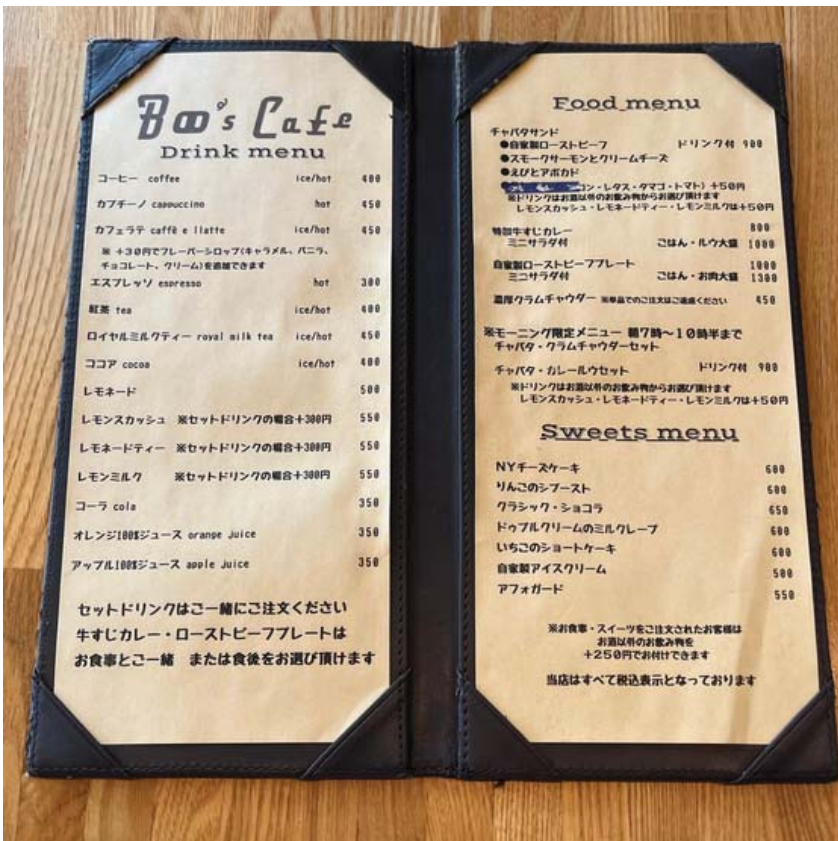 Boo's Cafe
Drink menu
コーヒー coffee ice/hot 400
カプチーノ cappuccino hot 450
カフェラテ caffè e llatte ice/hot 450
※ +30円でフレーバーシロップ(キャラメル、バニラ、
チョコレート、クリーム)を追加できます
エスプレッソ espresso hot 300
紅茶 tea ice/hot 400
ロイヤルミルクティー royal milk tea ice/hot 450
ココア cocoa ice/hot 400
レモネード 500
レモンスカッシュ ※セットドリンクの場合+300円 550
レモネードティー ※セットドリンクの場合+300円 550
レモンミルク ※セットドリンクの場合+300円 550
コーラ cola 350
オレンジ100%ジュース orange juice 350
アップル100%ジュース apple juice 350
セットドリンクはご一緒にご注文ください
牛すじカレー・ローストビーフプレートは
お食事とご一緒 または食後をお選び頂けます
Food menu
チャバタサンド
●自家製ローストビーフ ドリンク付 900
●スモークサーモンとクリームチーズ
●えびとアボカド
コン・レタス・タマゴ・トマト) +50円
※ドリンクはお酒以外のお飲み物からお選び頂けます
レモンスカッシュ・レモネードティー・レモンミルクは+50円
特製牛すじカレー 800
ミニサラダ付 ごはん・ルウ大盛 1000
自家製ローストビーフプレート 1000
ミニサラダ付 ごはん・お肉大盛 1300
濃厚クラムチャウダー ※単品でのご注文はご遠慮ください 450
※モーニング限定メニュー 朝7時～10時半まで
チャバタ・クラムチャウダーセット
チャバタ・カレールウセット ドリンク付 900
※ドリンクはお酒以外のお飲み物からお選び頂けます
レモンスカッシュ・レモネードティー・レモンミルクは+50円
Sweets menu
NYチーズケーキ 600
りんごのシブースト 600
クラシック・ショコラ 650
ドゥブルクリームのミルクレープ 600
いちごのショートケーキ 600
自家製アイスクリーム 500
アフォガード 550
※お食事・スイーツをご注文されたお客様は
お酒以外のお飲み物を
+250円でお付けできます
当店はすべて税込表示となっております